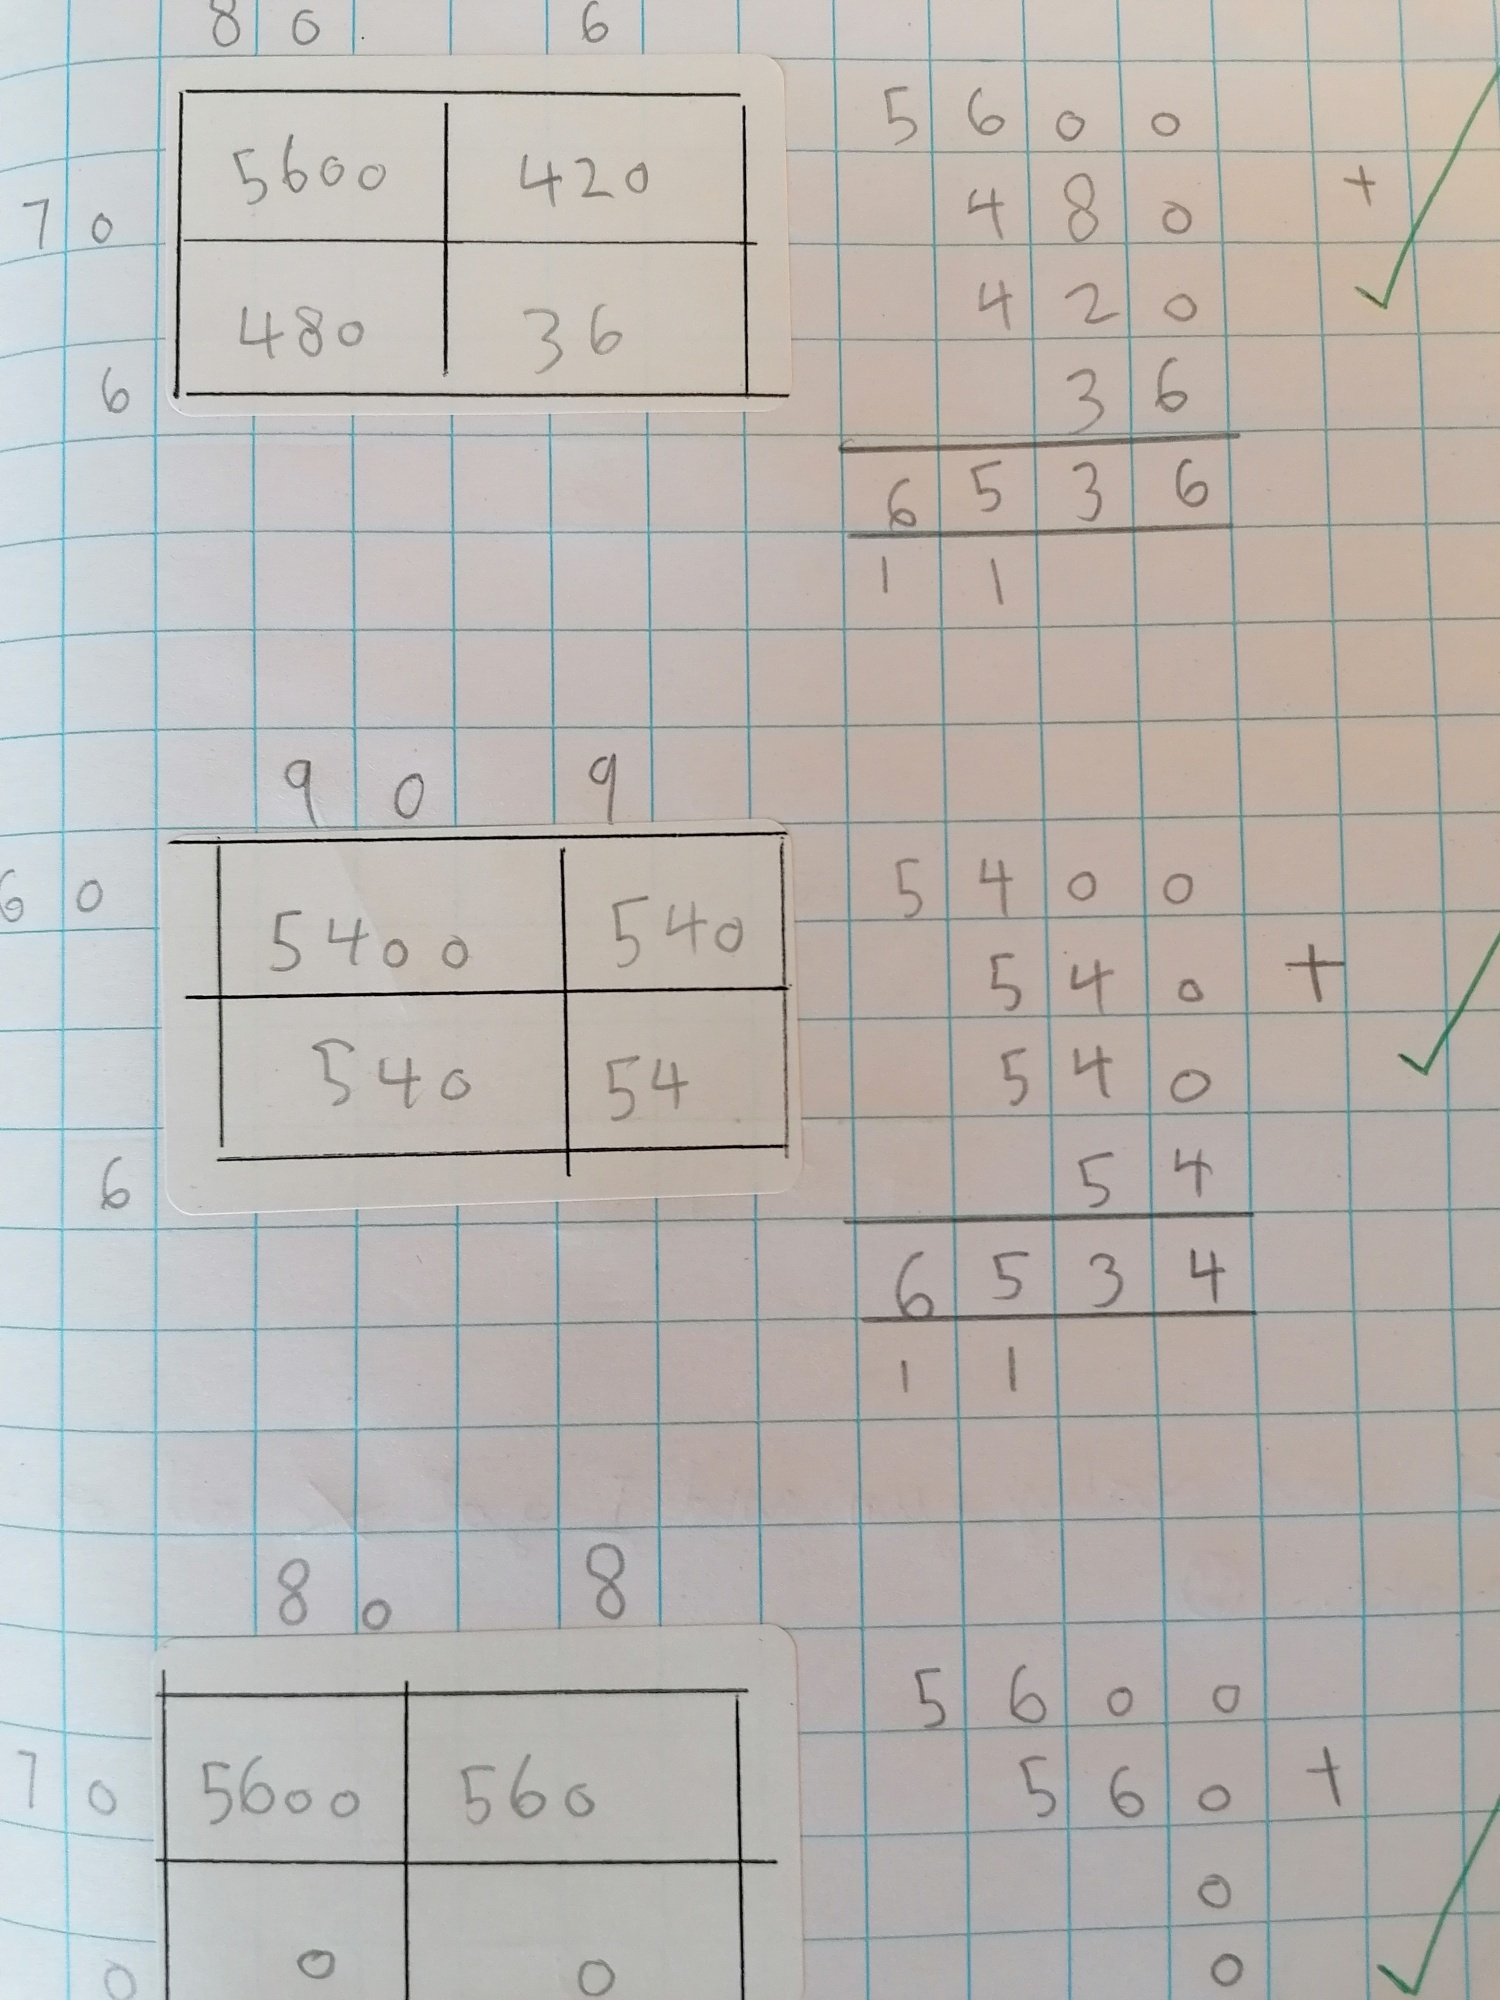 80 6
5600 420
70
480 36
6
5600
480 +
420
36
6536
1 1
90 9
60
5400 540
540 54
6
5400
540 +
540
54
6534
1 1
80 8
70
5600 560
0 0
0
5600
560 +
0
0